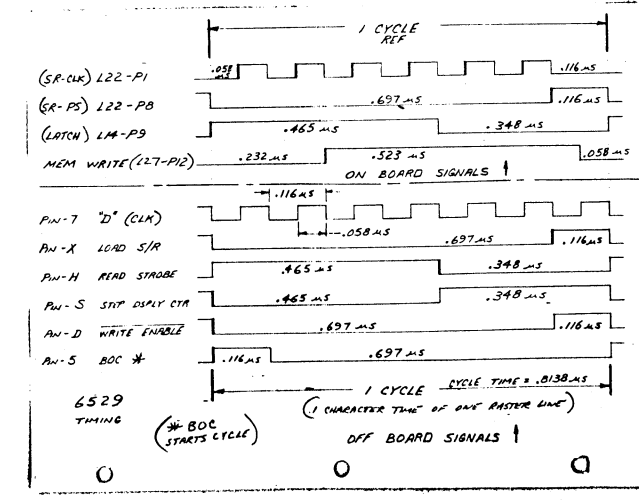 1 CYCLE
REF
.058 µs
.116 µs
(SR-CLK) L22-P1
(SR-PS) L22-P8 .697 µs .116 µs
(LATCH) L14-P9 .465 µs .348 µs
MEM WRITE (L27-P12) .232 µs .523 µs .058 µs
ON BOARD SIGNALS
.116 µs
PIN-7 "D" (CLK)
.058 µs
PIN-X LOAD S/R .697 µs .116 µs
PIN-H READ STROBE .465 µs .348 µs
PIN-S STEP DSPLY CTR .465 µs .348 µs
PIN-D WRITE ENABLE .697 µs .116 µs
PIN-5 BOC * .116 µs .697 µs
1 CYCLE CYCLE TIME = .8138 µs
(1 CHARACTER TIME OF ONE RASTER LINE)
6529
TIMING
(* BOC
STARTS CYCLE)
OFF BOARD SIGNALS